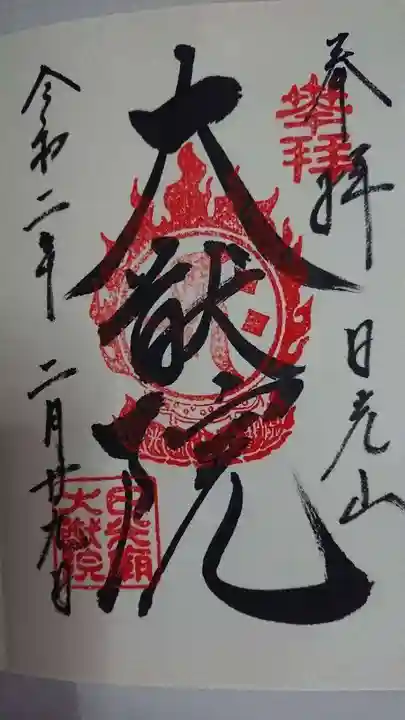 奉拝
日光山
奉拝
大猷院
令和二年 二月廿九日
日光廟
大猷院